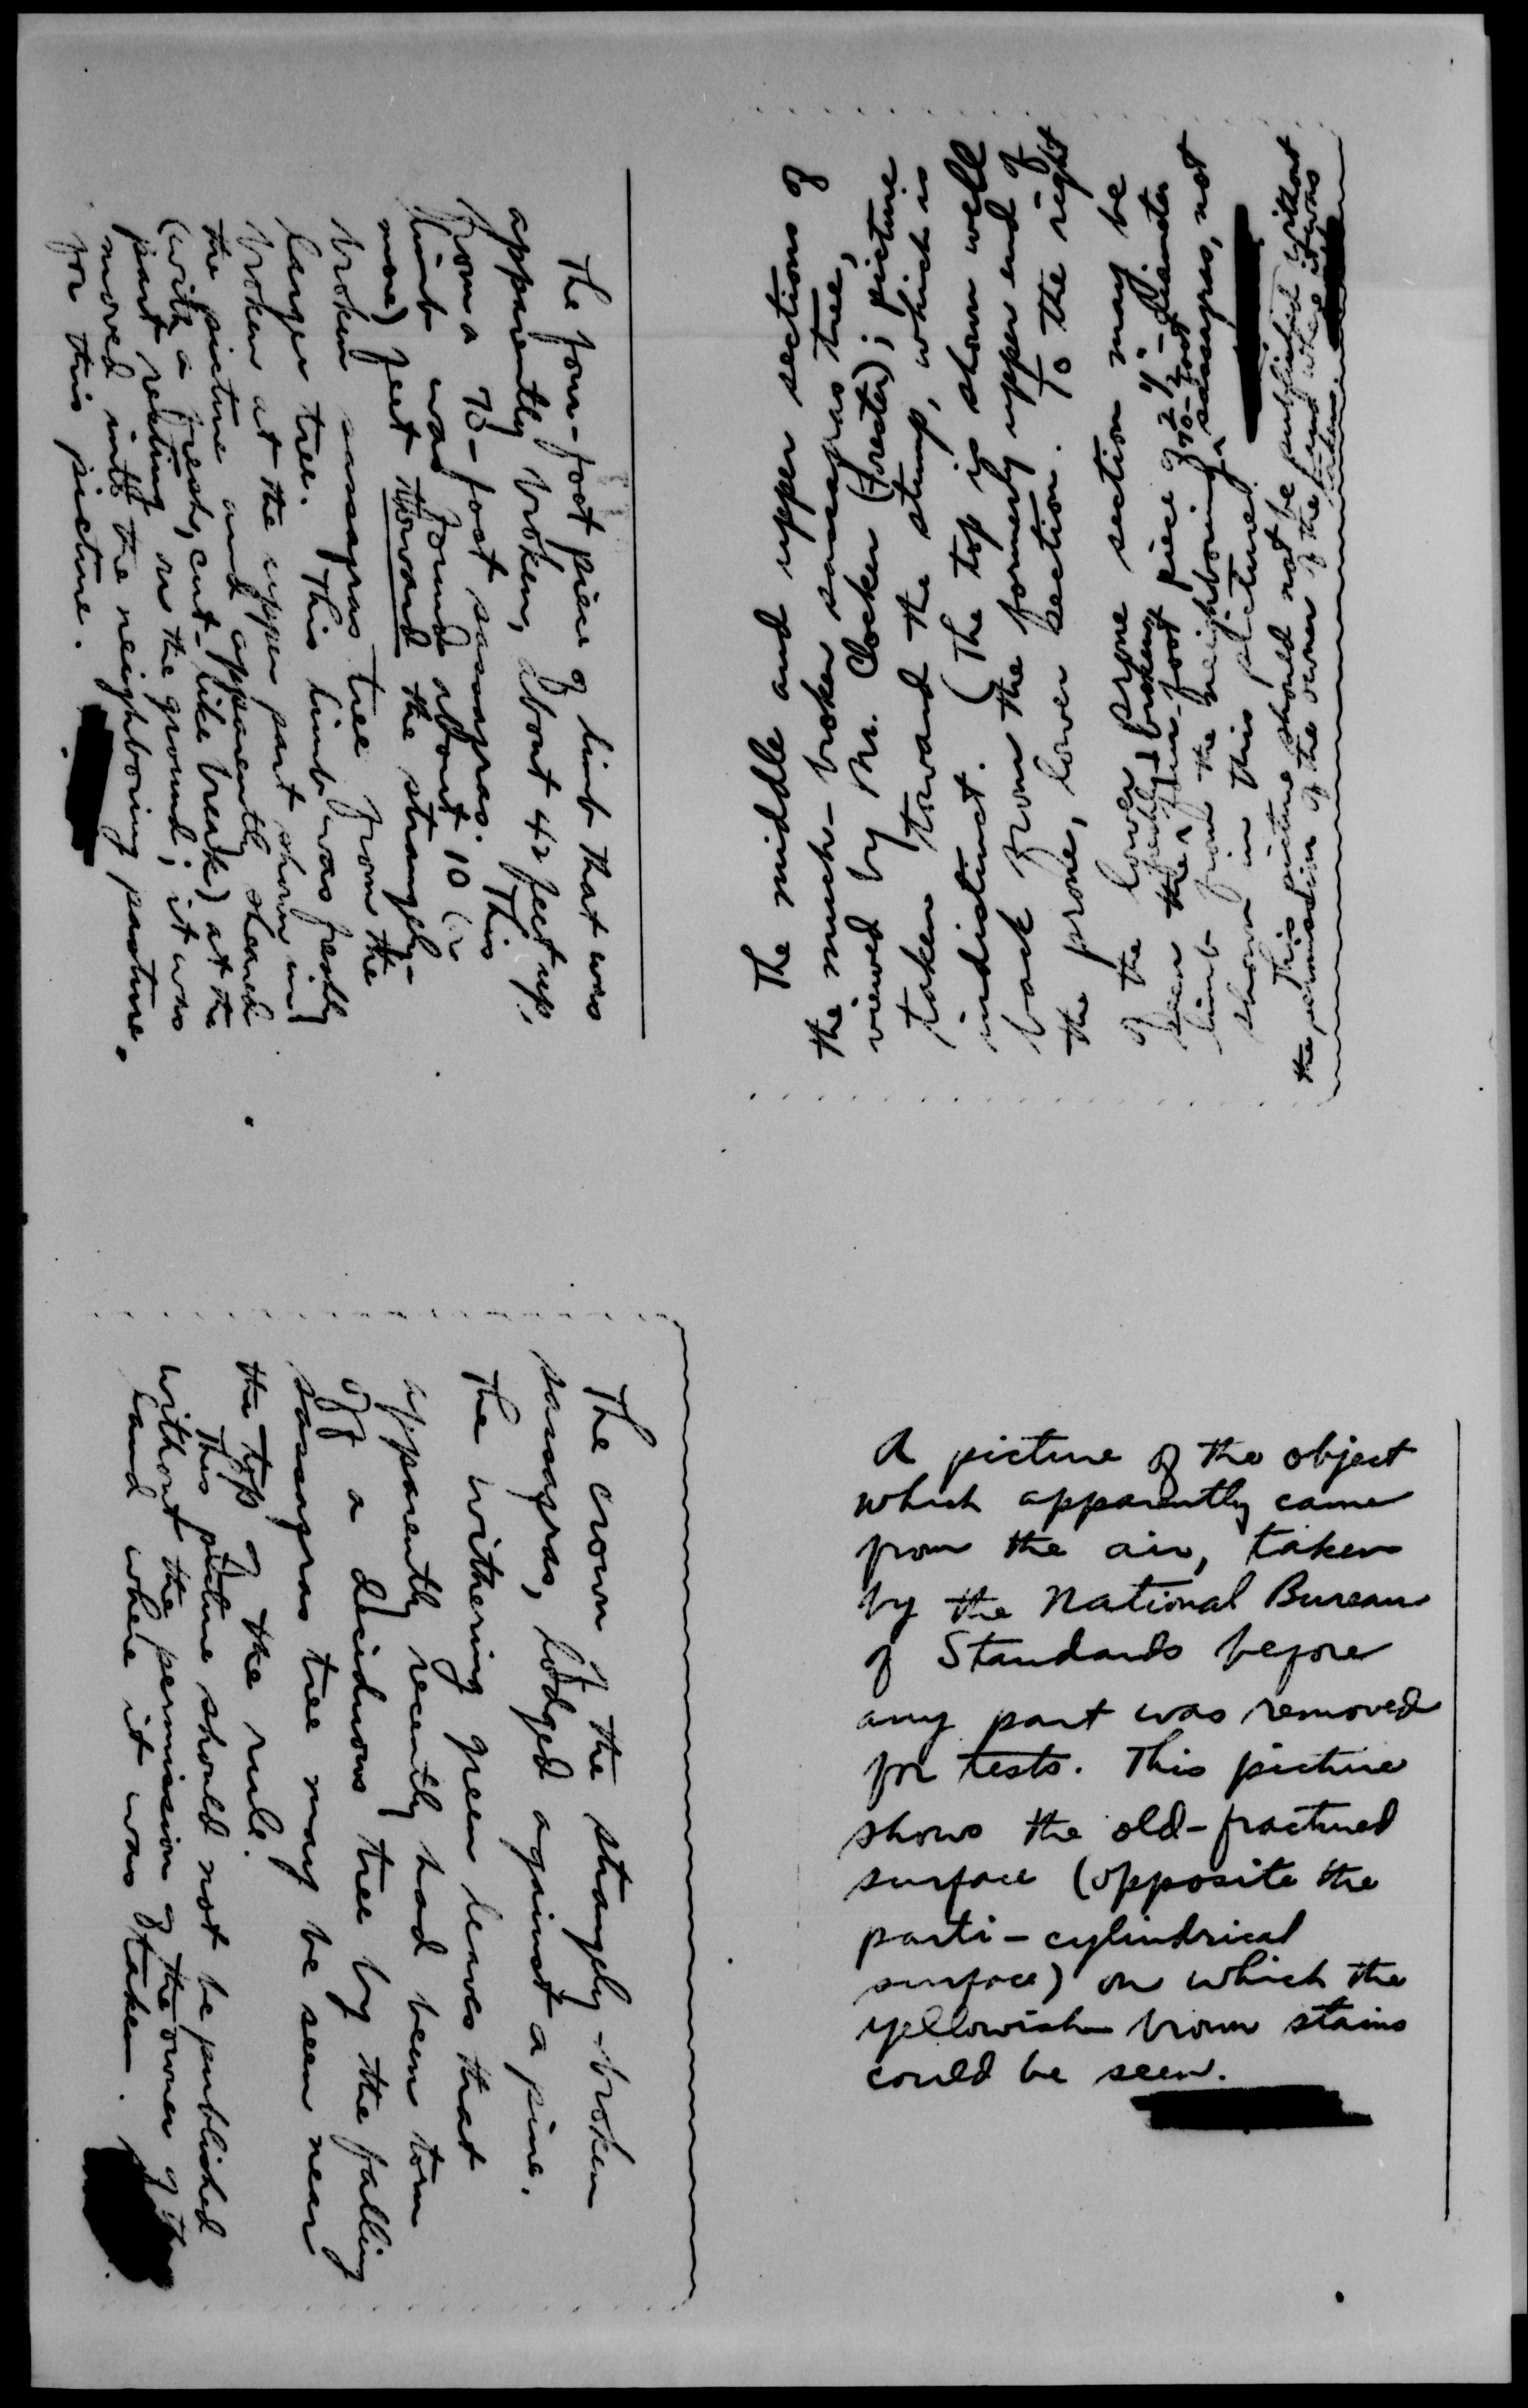 The four-foot piece of limb that was
apparently broken, about 42 feet up,
from a 70-foot sassafras. This
limb was found about 10 (or
more) feet toward the strangely-
broken sassafras tree from the
larger tree. This limb was freshly
broken at the upper part shown in
the picture and apparently sheared
(with a fresh, cut-like break) at the
part resting on the ground; it was
moved into the neighboring pasture
for this picture.
The middle and upper sections of
the much-broken sassafras tree,
viewed by Mr. Clocker (forester); picture
taken toward the stump, which is
indistinct. (The top is shown well
back from the formerly upper end of
the prone, lower section. To the right
of the lower prone section may be
seen the freshly-broken piece of 2 1/4"-diameter
limb from the neighboring 70-foot sassafras, not
shown in this picture.)
This picture should not be published without
the permission of the owner of the land where it was
taken.
The crown of the strangely-broken
sassafras, lodged against a pine.
The withering green leaves that
apparently recently had been torn
off a deciduous tree by the falling
sassafras tree may be seen near
the top of the rule.
This picture should not be published
without the permission of the owner of the
land where it was taken.
A picture of the object
which apparently came
from the air, taken
by the National Bureau
of Standards before
any part was removed
for tests. This picture
shows the old-fractured
surface (opposite the
parti-cylindrical
surface) on which the
yellowish brown stains
could be seen.